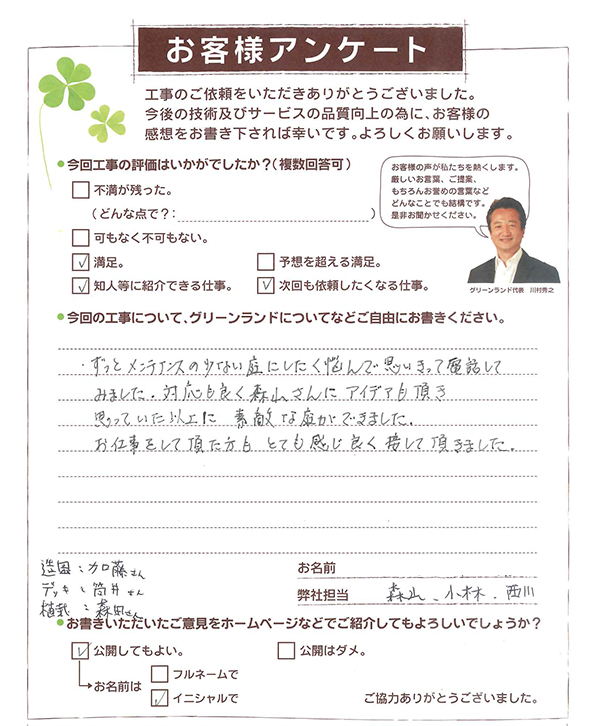 お客様アンケート
工事のご依頼をいただきありがとうございました。
今後の技術及びサービスの品質向上の為に、お客様の
感想をお書き下されば幸いです。よろしくお願いします。
●今回工事の評価はいかがでしたか？(複数回答可)
お客様の声が私たちを熱くします。
厳しいお言葉、ご提案、
もちろんお誉めの言葉など
どんなことでも結構です。
是非お聞かせください。
グリーンランド代表　川村秀之
□ 不満が残った。
(どんな点で？: )
□ 可もなく不可もない。
☑ 満足。 □ 予想を超える満足。
☑ 知人等に紹介できる仕事。 ☑ 次回も依頼したくなる仕事。
●今回の工事について、グリーンランドについてなどご自由にお書きください。
・ずっとメンテナンスの少ない庭にしたく悩んで思いきって電話して
みました。対応も良く森山さんにアイデアも頂き
思っていた以上に 素敵な庭ができました。
お仕事をして頂た方も とても感じ良く接して頂きました。
造園：加藤さん
デッキ：筒井さん
植栽：森田さん
お名前
弊社担当 森山、小林、西川
●お書きいただいたご意見をホームページなどでご紹介してもよろしいでしょうか？
☑ 公開してもよい。 □ 公開はダメ。
→お名前は □ フルネームで
☑ イニシャルで
ご協力ありがとうございました。